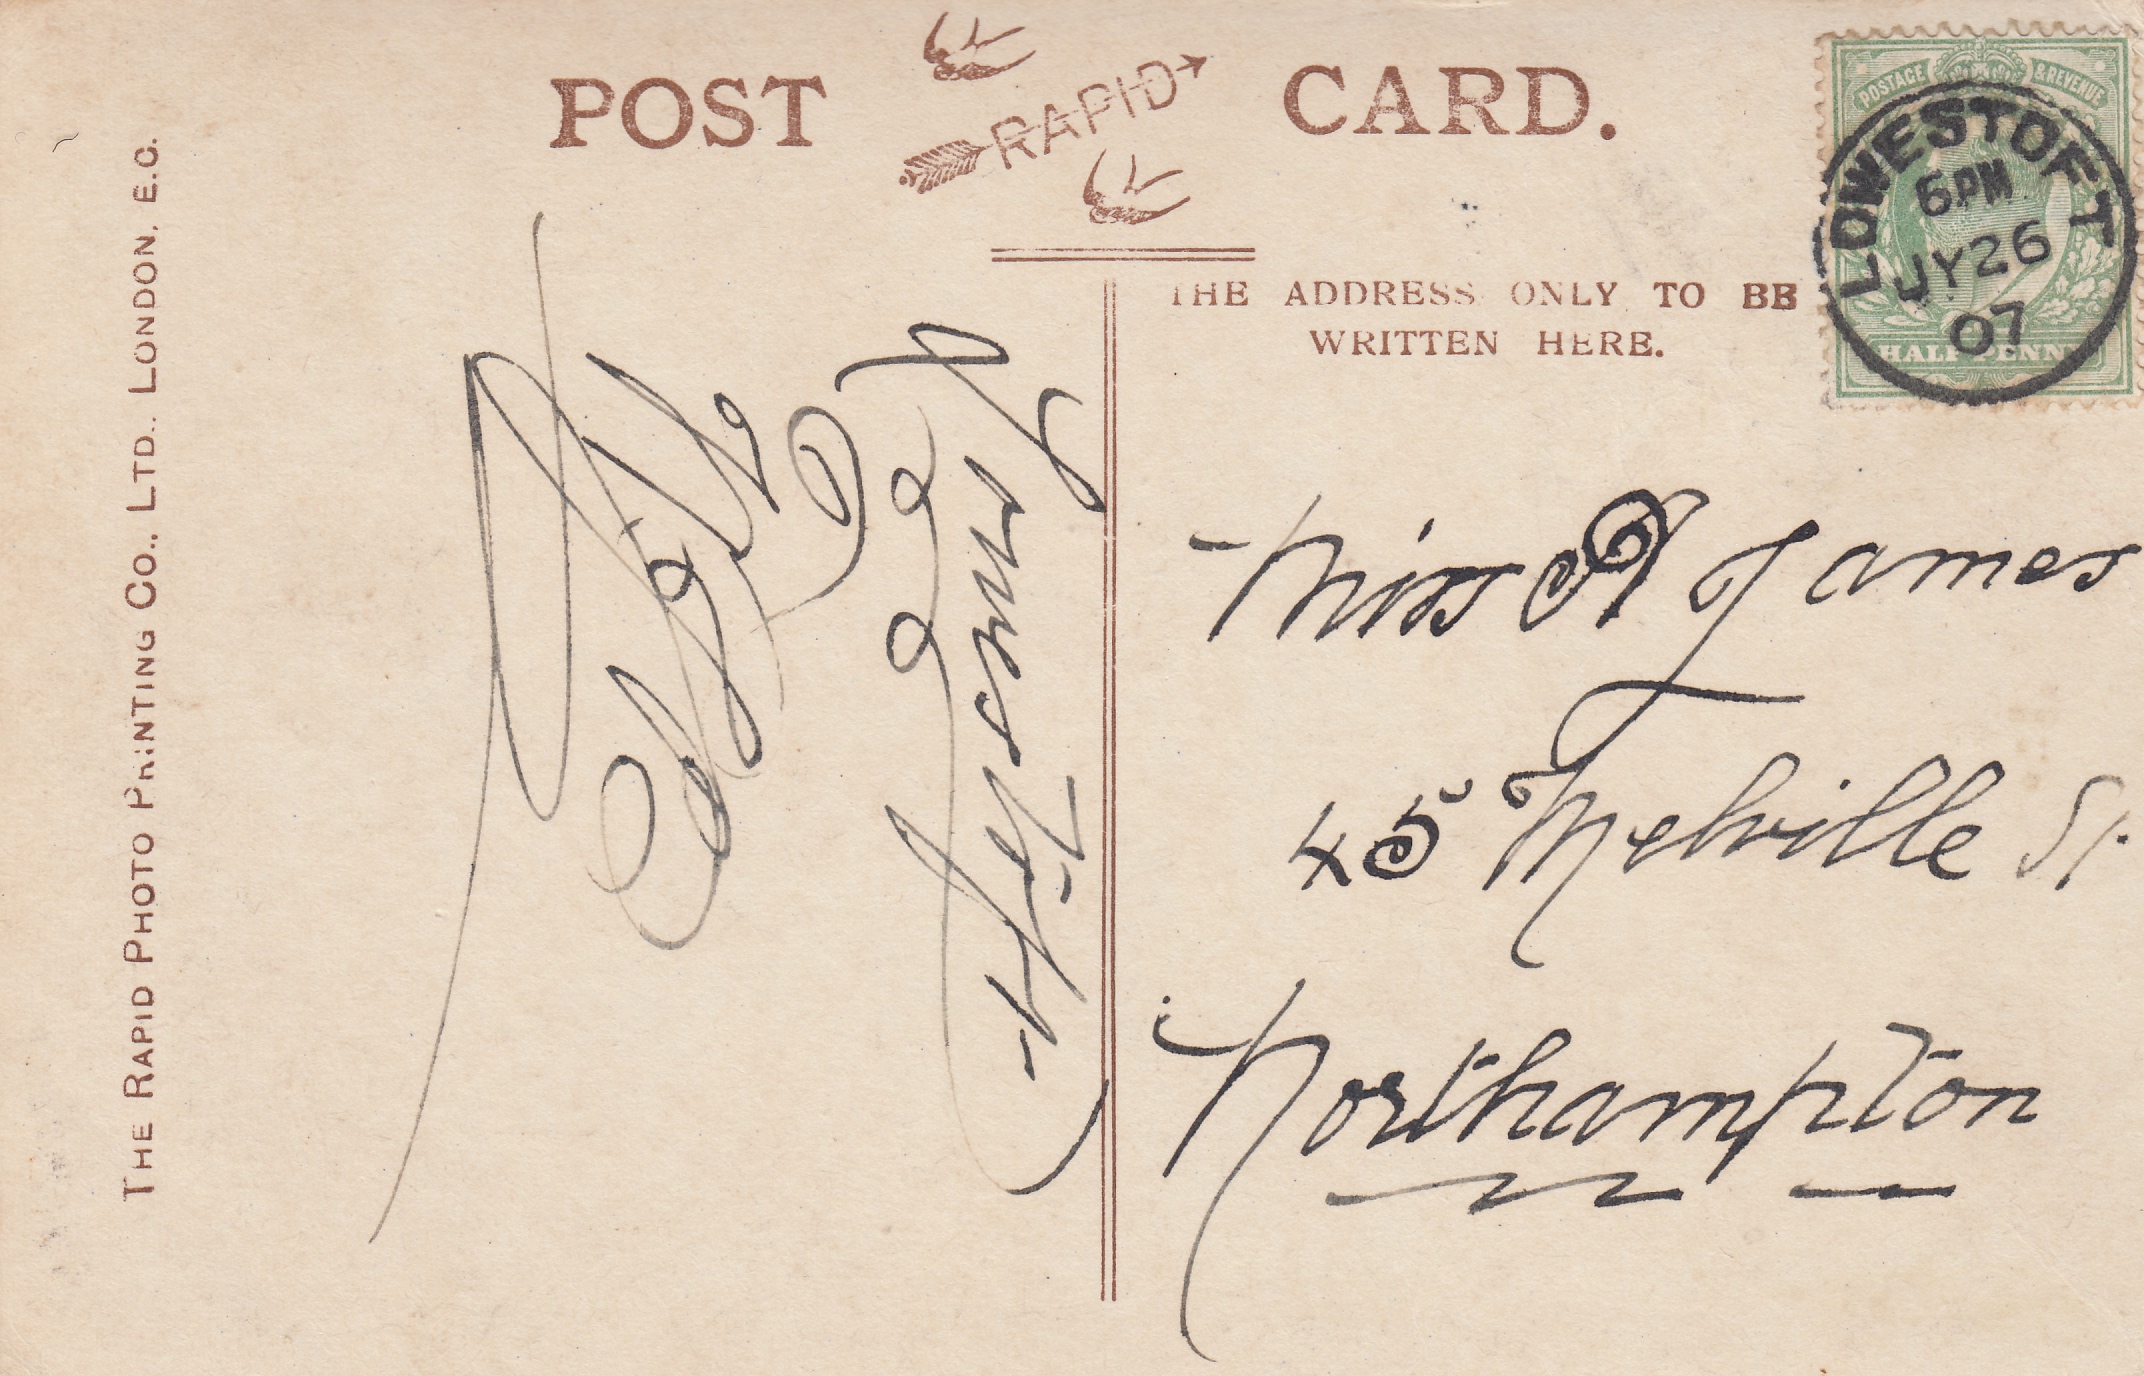 POST CARD.
RAPID
THE ADDRESS ONLY TO BE
WRITTEN HERE.
POSTAGE & REVENUE
HALFPENNY
LOWESTOFT
6 PM
JY 26
07
Miss James
45 Melville St.
Northampton
THE RAPID PHOTO PRINTING CO., LTD., LONDON, E.C.